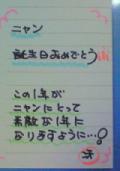 ニャン
誕生日おめでとう!!
この1年が
ニャンにとって
素敵な1年に
なりますように…。